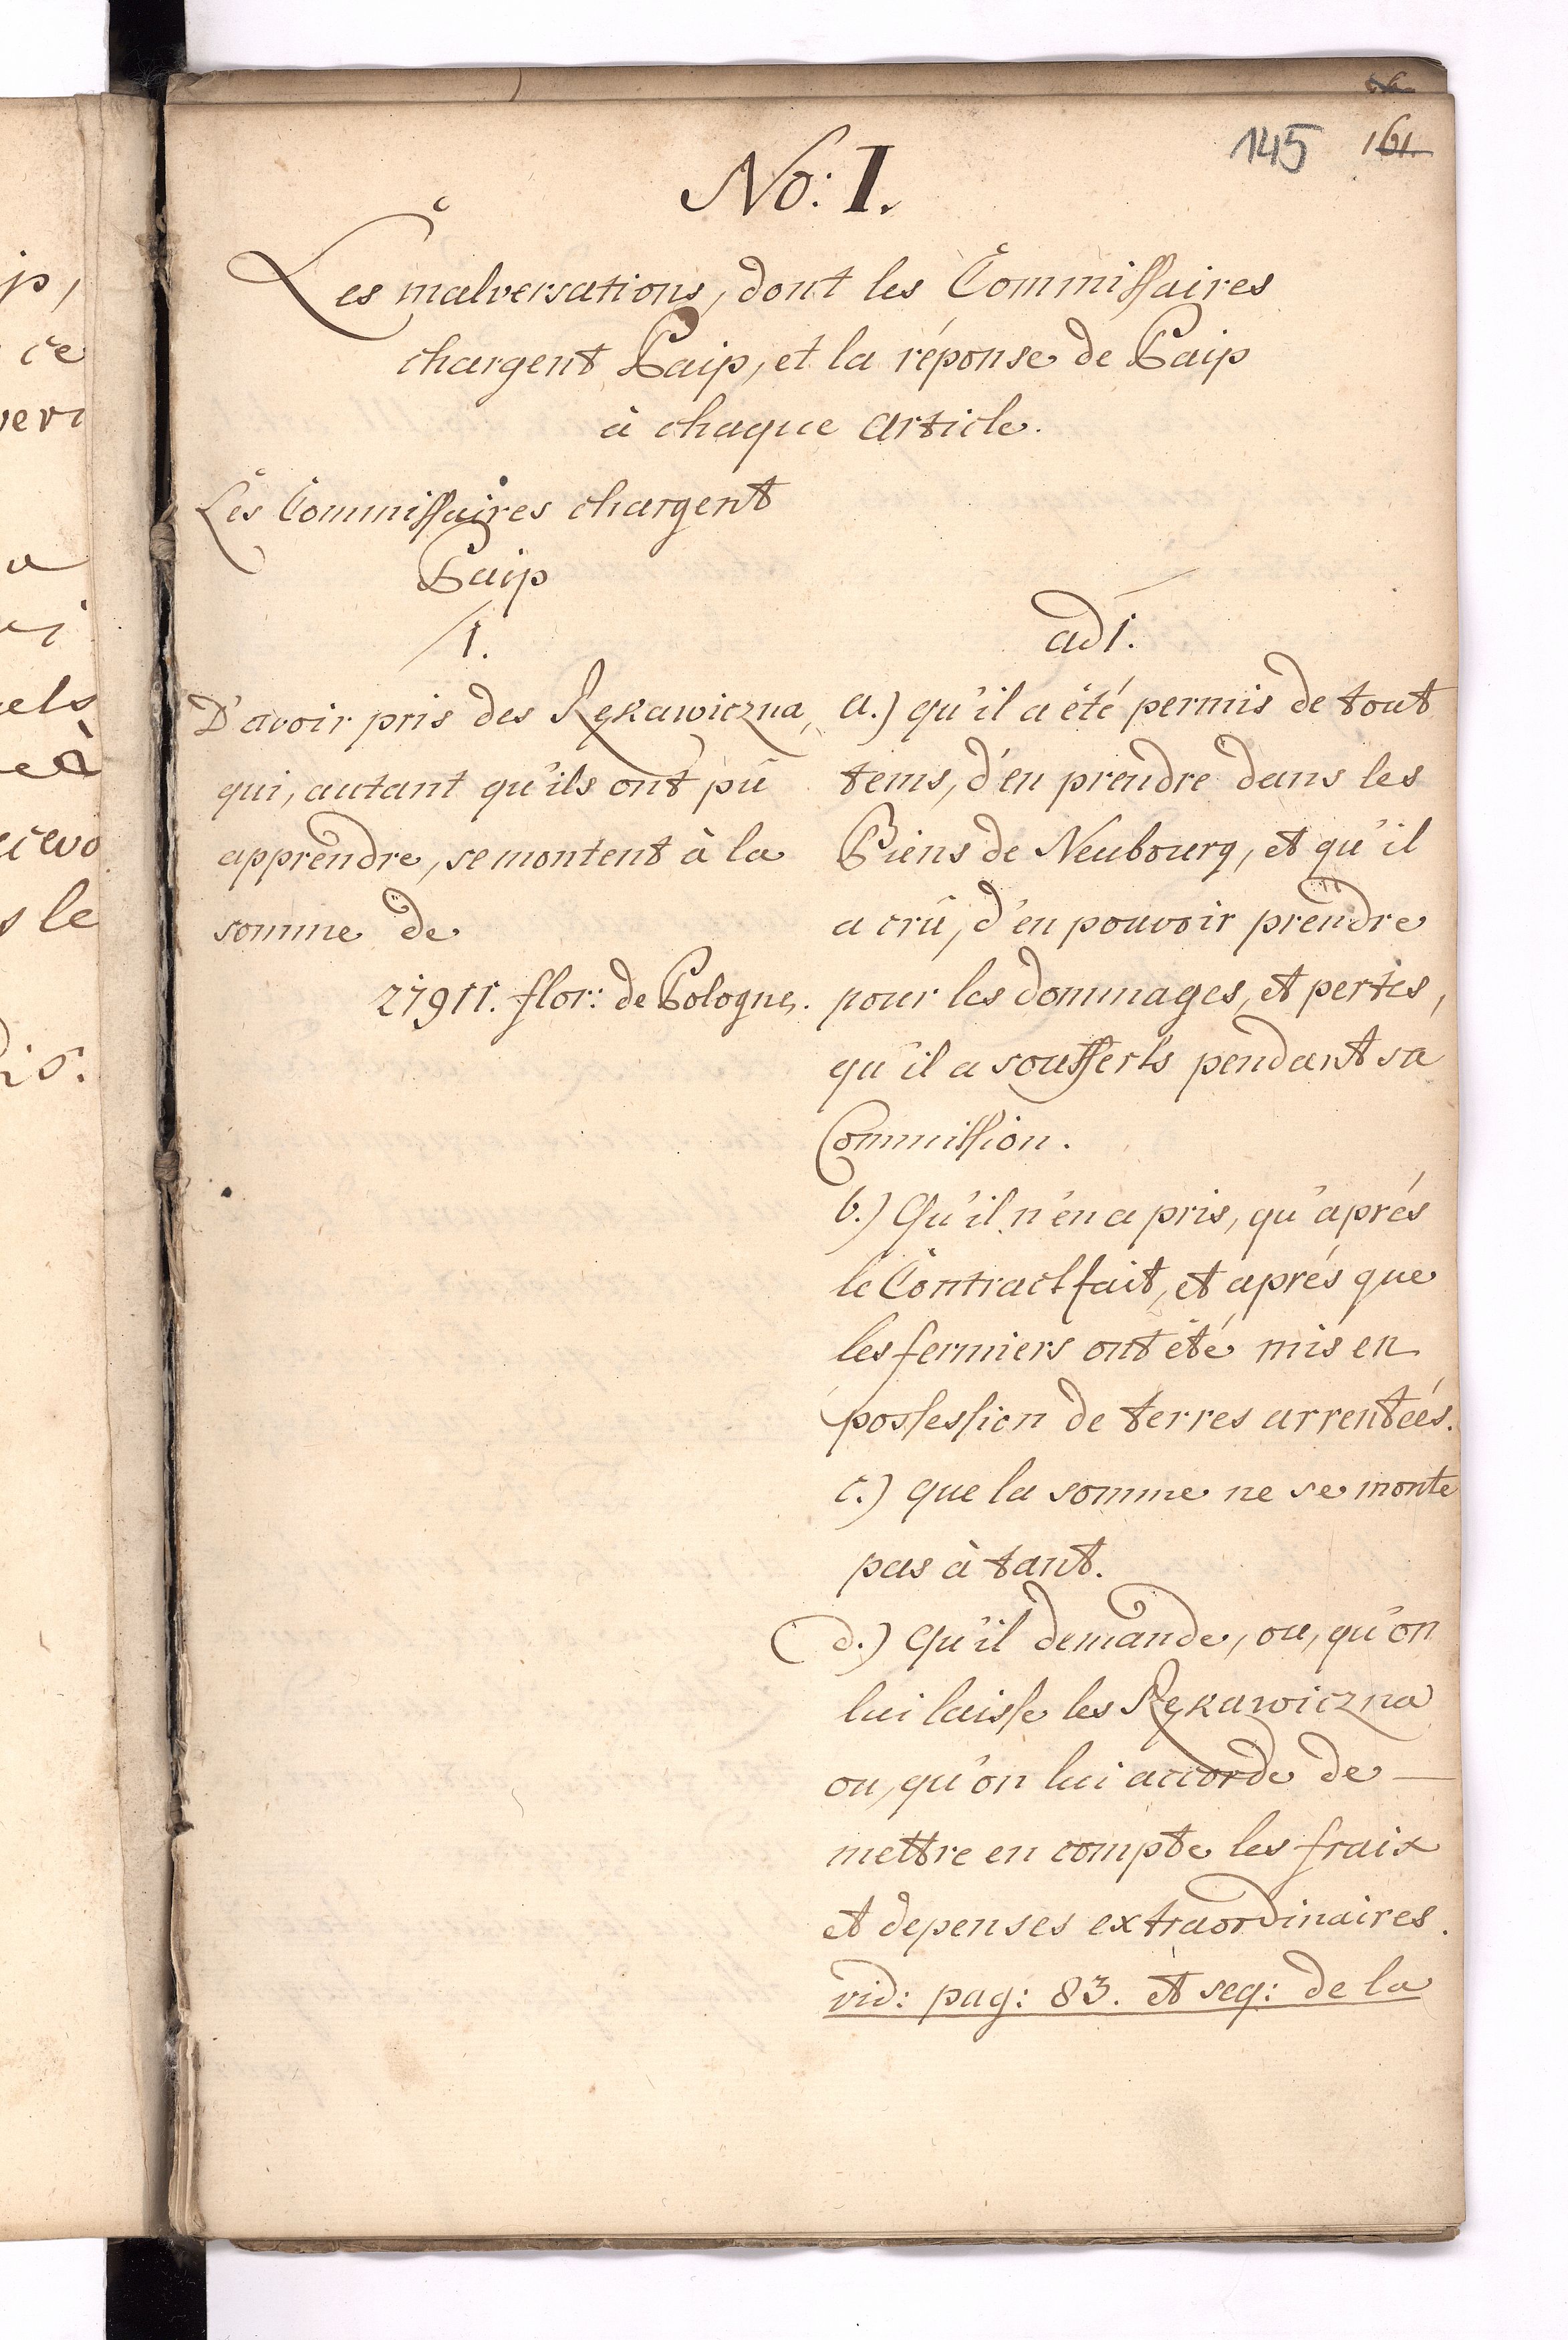 145 161.
No: I.
Les malversations, dont les Commissaires
chargent Paip, et la réponse de Paip
à chaque article.
Les Commissaires chargent
Paip
1.
D'avoir pris des Rękawiczna,
qui, autant qu'ils ont pû
apprendre, se montent à la
somme de
27911. flor: de Pologne.
ad 1.
a.) qu'il a été permis de tout
tems, d'en prendre dans les
Biens de Neubourg, et qu'il
a crû, d'en pouvoir prendre
pour les dommages, et pertes,
qu'il a soufferts pendant sa
Commission.
b.) Qu'il n'en a pris, qu'aprés
le Contract fait, et aprés que
les fermiers ont été mis en
possession de terres arrentées.
c.) que la somme ne se monte
pas à tant.
d.) Qu'il demande, ou, qu'on
lui laisse les Rękawiczna
ou, qu'on lui accorde de —
mettre en compte les fraix
et depenses extraordinaires.
vid: pag: 83. et seq: de la